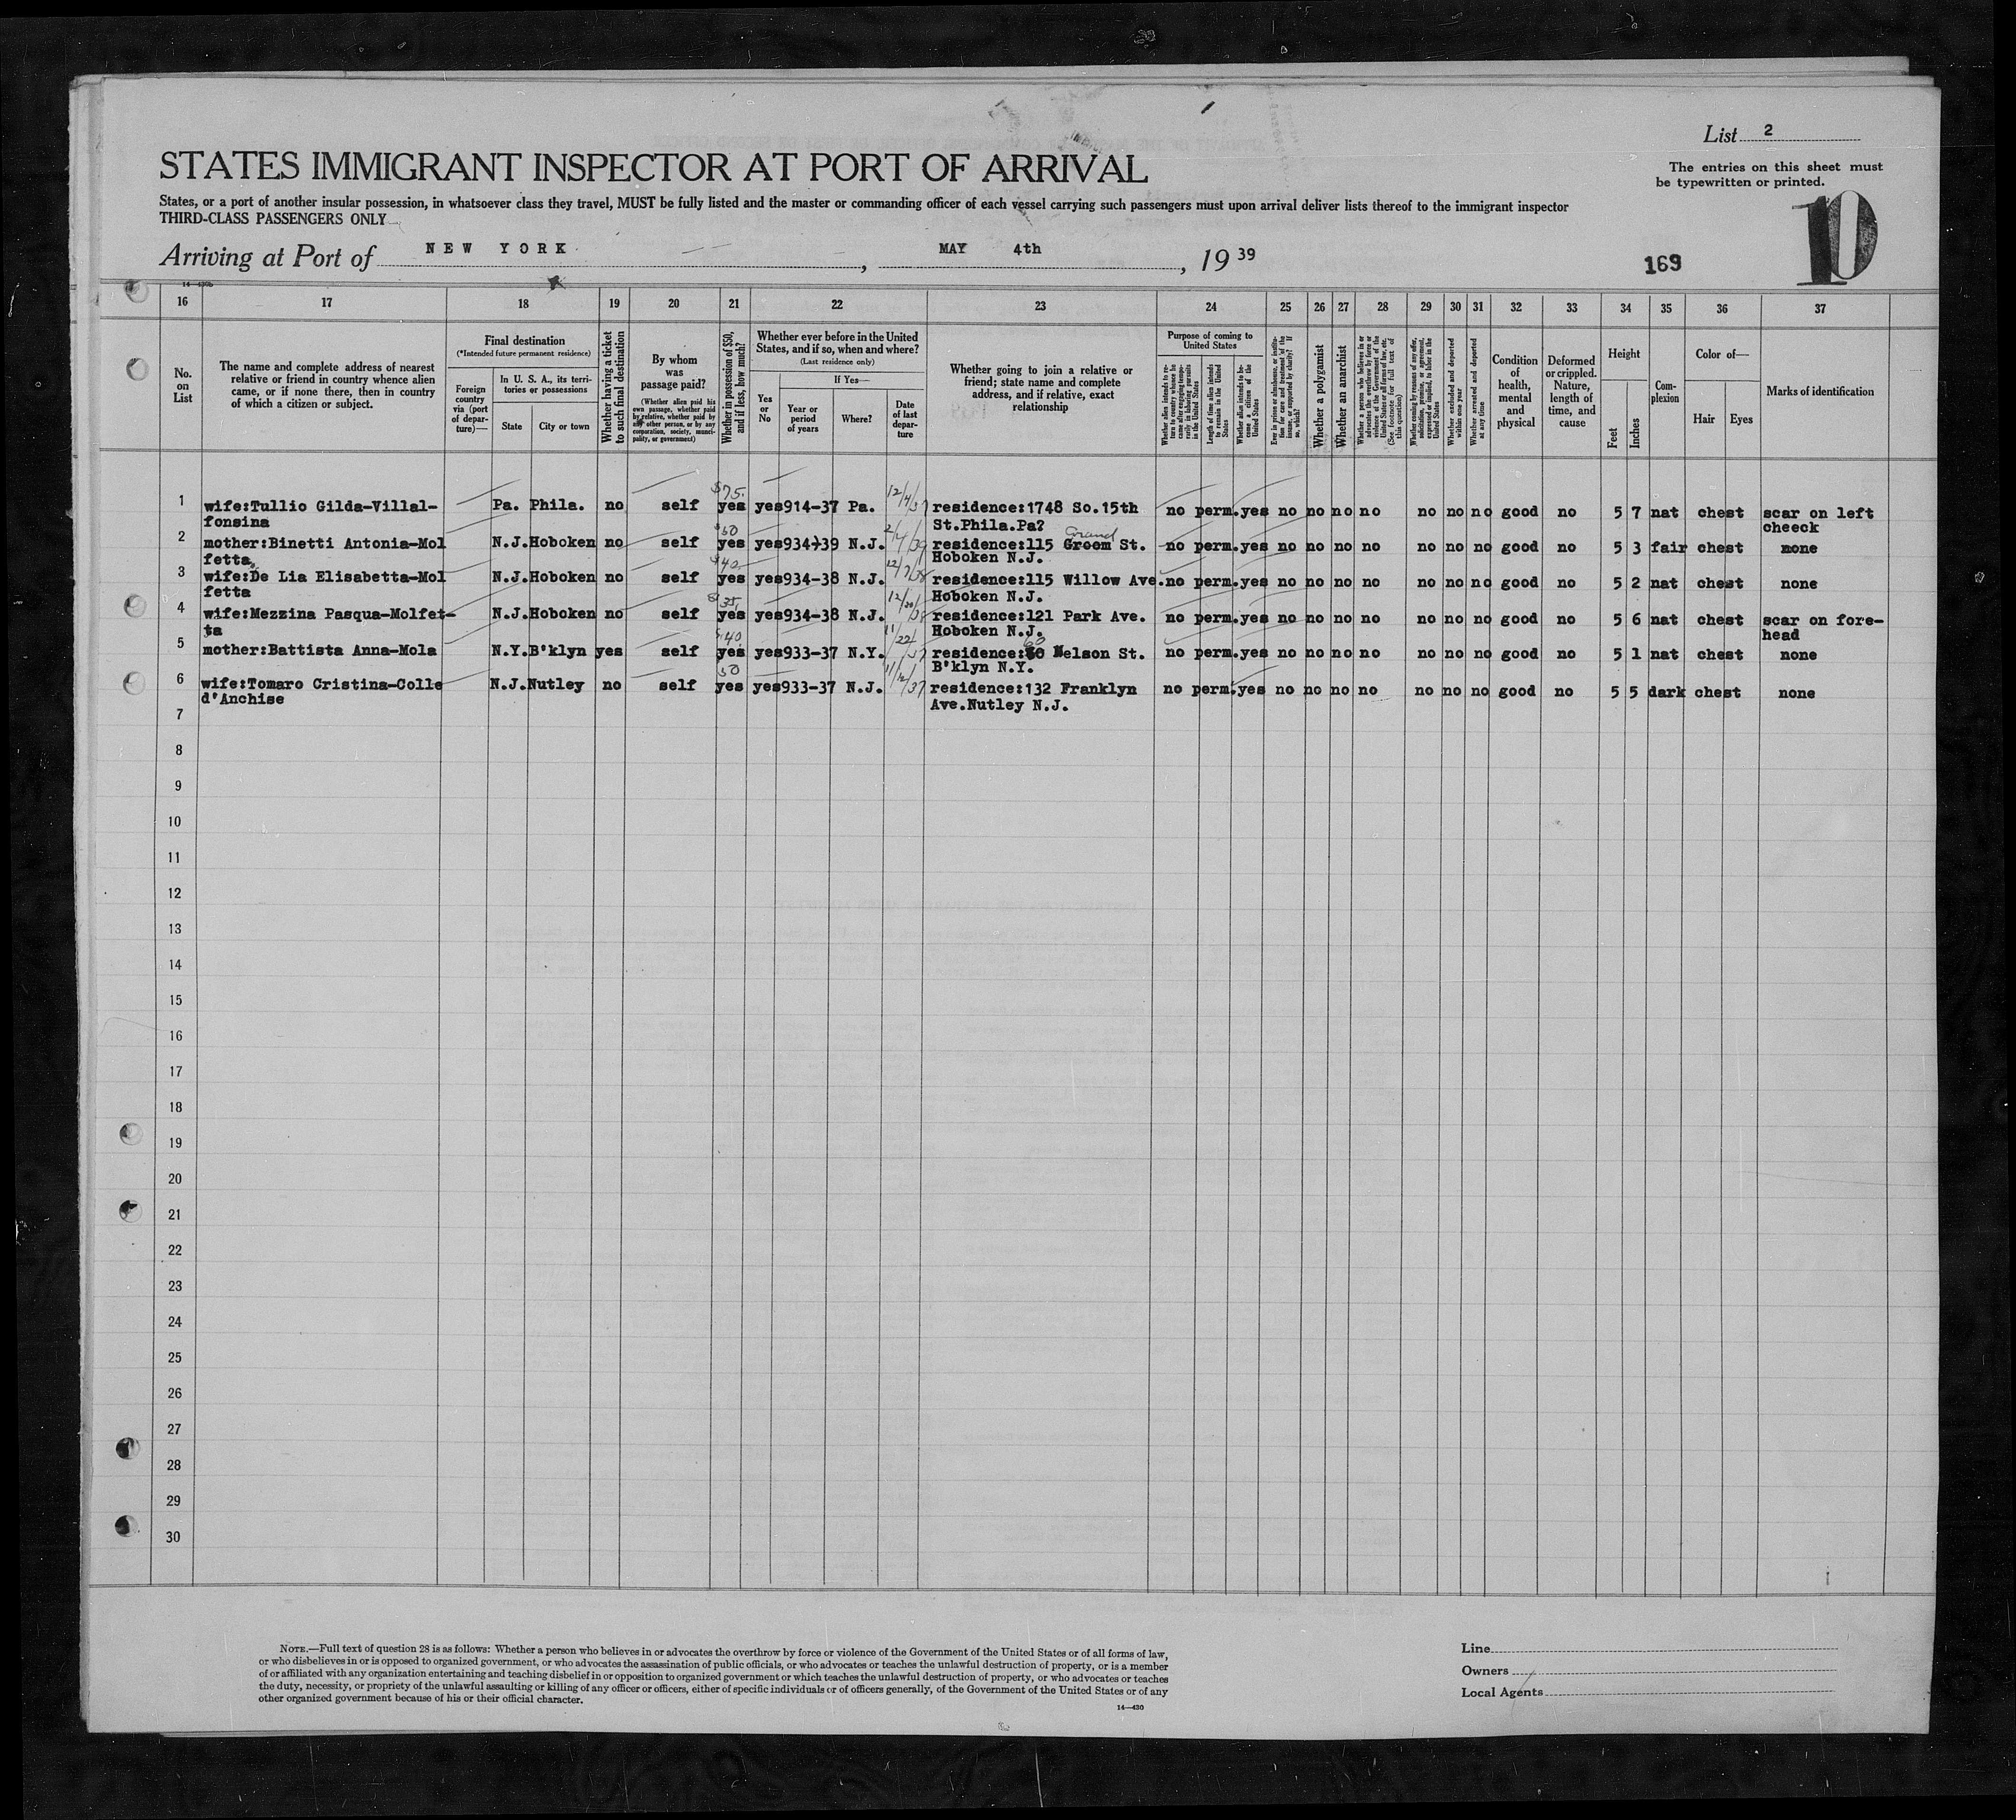 List 2
STATES IMMIGRANT INSPECTOR AT PORT OF ARRIVAL
The entries on this sheet must
be typewritten or printed.
States, or a port of another insular possession, in whatsoever class they travel, MUST be fully listed and the master or commanding officer of each vessel carrying such passengers must upon arrival deliver lists thereof to the immigrant inspector
THIRD-CLASS PASSENGERS ONLY
10
Arriving at Port of NEW YORK, MAY 4th, 19 39
169
16 17 18 19 20 21 22 23 24 25 26 27 28 29 30 31 32 33 34 35 36 37
No.
on
List
The name and complete address of nearest
relative or friend in country whence alien
came, or if none there, then in country
of which a citizen or subject.
Final destination
(*Intended future permanent residence)
Foreign
country
via (port
of depar-
ture)—
In U. S. A., its terri-
tories or possessions
State
City or town
Whether having a ticket
to such final destination
By whom
was
passage paid?
(Whether alien paid his
own passage, whether paid
by relative, whether paid by
any other person, or by any
corporation, society, munici-
pality, or government)
Whether in possession of $50,
and if less, how much?
Whether ever before in the United
States, and if so, when and where?
(Last residence only)
Yes
or
No
If Yes—
Year or
period
of years
Where?
Date
of last
depar-
ture
Whether going to join a relative or
friend; state name and complete
address, and if relative, exact
relationship
Purpose of coming to
United States
Whether alien intends to re-
turn to country whence he
came after engaging tempo-
rarily in laboring pursuits
in the United States
Length of time alien intends
to remain in the United
States
Whether alien intends to be-
come a citizen of the
United States
Ever in prison or almshouse, or institu-
tion for care and treatment of the
insane, or supported by charity? If
so, which?
Whether a polygamist
Whether an anarchist
Whether a person who believes in or
advocates the overthrow by force or
violence of the Government of the
United States or all forms of law, etc.
(See footnote for full text of
this question)
Whether coming by reasons of any offer,
solicitation, promise, or agreement,
expressed or implied, to labor in the
United States
Whether excluded and deported
within one year
Whether arrested and deported
at any time
Condition
of
health,
mental
and
physical
Deformed
or crippled.
Nature,
length of
time, and
cause
Height
Feet
Inches
Com-
plexion
Color of—
Hair
Eyes
Marks of identification
$75. 12/4/37
1 wife:Tullio Gilda-Villal- Pa. Phila. no self yes yes914-37 Pa. residence:1748 So.15th no perm.yes no no no no no no no good no 5 7 nat chest scar on left
fonsina St.Phila.Pa? cheeck
50 Grand
2 mother:Binetti Antonia-Mol N.J.Hoboken no self yes yes934-39 N.J. residence:115 Groom St. no perm.yes no no no no no no no good no 5 3 fair chest none
fetta, Hoboken N.J.
40 12/7/38
3 wife:De Lia Elisabetta-Mol N.J.Hoboken no self yes yes934-38 N.J. residence:115 Willow Ave.no perm.yes no no no no no no no good no 5 2 nat chest none
fetta Hoboken N.J.
35
4 wife:Mezzina Pasqua-Molfet- N.J.Hoboken no self yes yes934-38 N.J. residence:121 Park Ave. no perm.yes no no no no no no no good no 5 6 nat chest scar on fore-
ta Hoboken N.J. head
$40 11/22/37
5 mother:Battista Anna-Mola N.Y.B'klyn yes self yes yes933-37 N.Y. residence: Nelson St. no perm.yes no no no no no no no good no 5 1 nat chest none
B'klyn N.Y.
50 11/12/37
6 wife:Tomaro Cristina-Colle N.J.Nutley no self yes yes933-37 N.J. residence:132 Franklyn no perm.yes no no no no no no no good no 5 5 dark chest none
d'Anchise Ave.Nutley N.J.
7
8
9
10
11
12
13
14
15
16
17
18
19
20
21
22
23
24
25
26
27
28
29
30
NOTE.—Full text of question 28 is as follows: Whether a person who believes in or advocates the overthrow by force or violence of the Government of the United States or of all forms of law,
or who disbelieves in or is opposed to organized government, or who advocates the assassination of public officials, or who advocates or teaches the unlawful destruction of property, or is a member
of or affiliated with any organization entertaining and teaching disbelief in or opposition to organized government or which teaches the unlawful destruction of property, or who advocates or teaches
the duty, necessity, or propriety of the unlawful assaulting or killing of any officer or officers, either of specific individuals or of officers generally, of the Government of the United States or of any
other organized government because of his or their official character.
14—430
Line
Owners
Local Agents